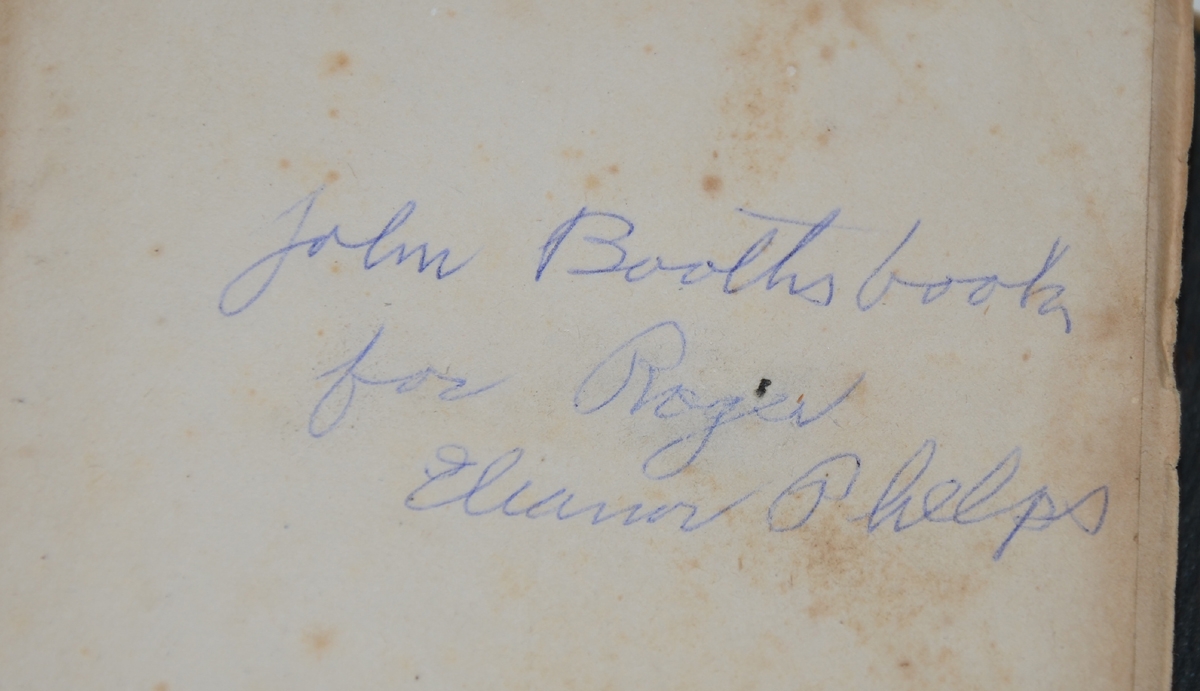 John Booths book
for Roger
Eleanor Phelps